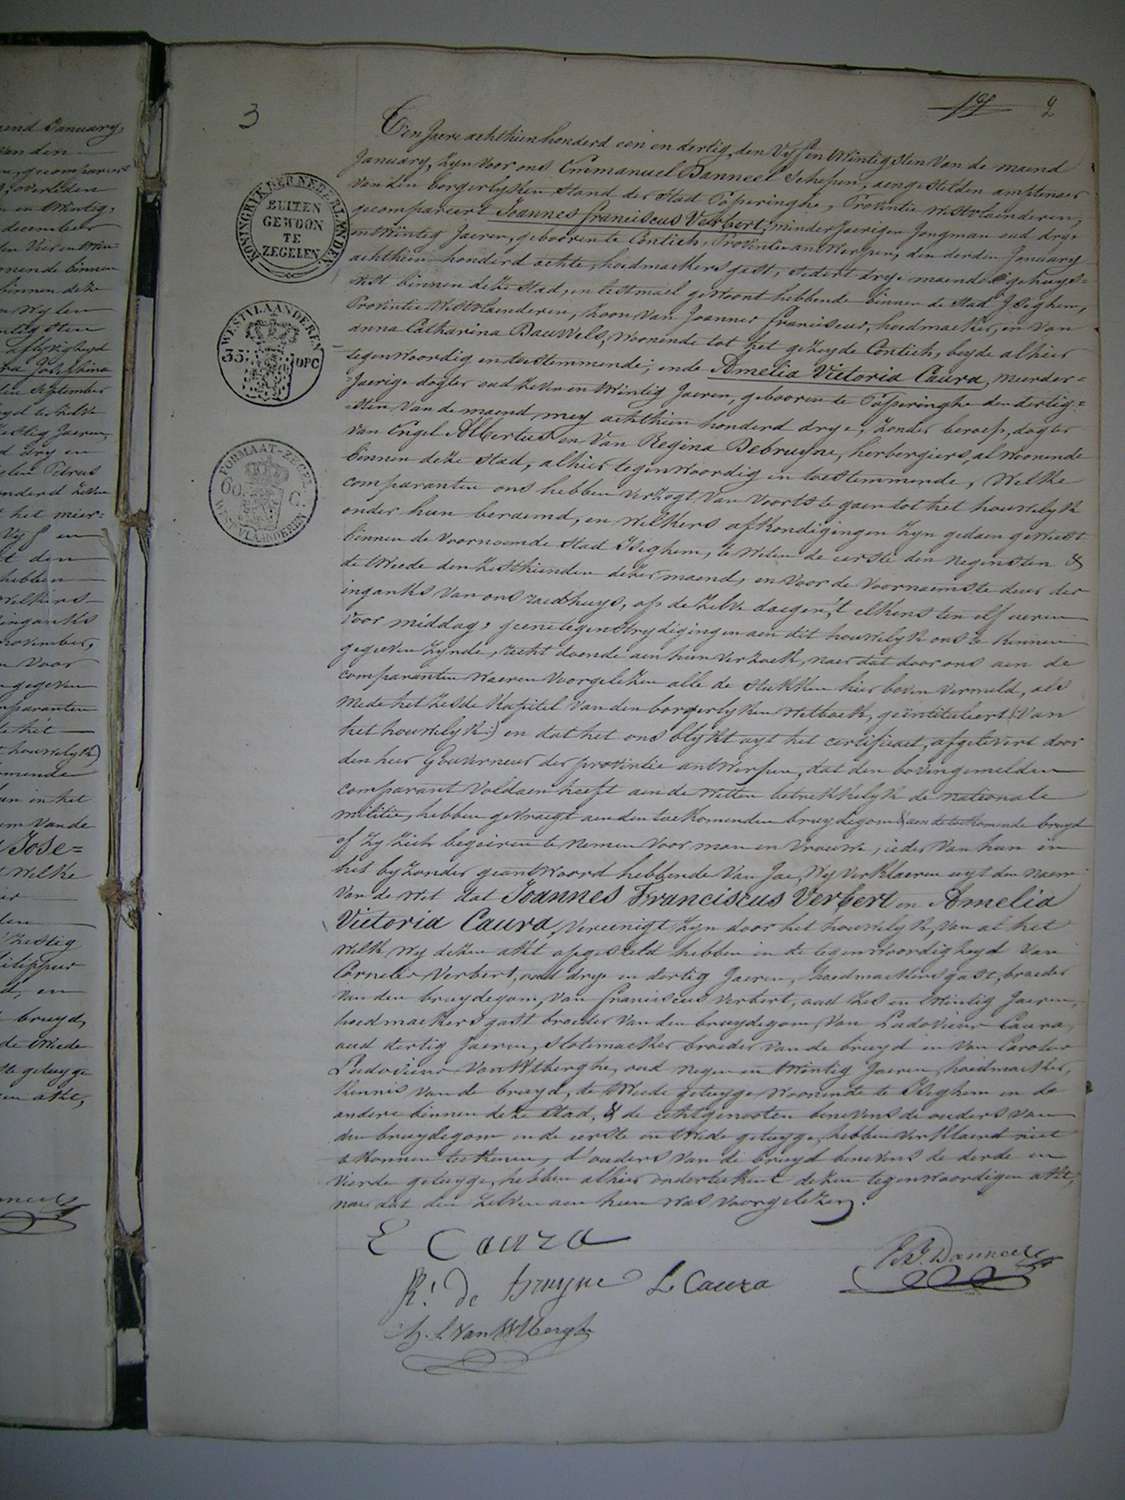 3
19 2
Ten Jaere achthien honderd een en dertig, den Vyf en Twintigsten Van de maend
January, Zyn voor ons Emmanuel Danneel Schepen, aengestelden amptenaer
Van den borgerlyken Stand der Stad Poperinghe, Provintie Westvlaenderen,
gecompareert Joannes franciscus Verbert, minderjaerigen Jongman oud dry-
en twintig Jaeren, gebooren te Contich, Provintie antwerpen, den derden January
achthien honderd achte, hoedmaekers gast, sedert drye maenden gehuys-
vest binnen deze Stad, en lestmael gewoont hebbende binnen de Stad Iseghem,
Provintie Westvlaenderen, Zoon van Joannes franciscus, hoedmaeker, en van
anna Catharina Bauwels, woonende tot het gezeyde Contich, beyde alhier
tegenwoordig en toestemmende; ende Amelia Victoria Caura, meerder-
Jaerige dogter oud Zeven en twintig Jaeren, gebooren te Poperinghe den dertig-
sten van de maend mey achthien honderd drye, Zonder beroep, dogter
van Engel Albertus en van Regina Debruyne, herbergiers, al woonende
binnen deze Stad, alhier tegenwoordig en toestemmende, Welke
comparanten ons hebben verzogt van voorts te gaen tot het houwelyk
onder hun beraemd, en welkers afkondigingen zyn gedaen geweest
binnen de voornoemde Stad Iseghem, te weten de eerste den negensten &
de tweede den zesthienden dezer maend, en voor de voornaemste deur der
inganks van ons raedhuys, op de zelve daegen, 't elkens ten elf ueren
voor middag, geene tegenstrydigingen aen dit houwelyk ons te kennen
gegeven zynde, recht doende aen hun verzoek, naer dat door ons aen de
comparanten waeren voorgelezen alle de stukken hier boven vermeld, als
mede het zesde Kapitel van den borgerlyken wetboek, geïntituleert (van
het houwelyk) en dat het ons blykt uyt het certificaet, afgelevert door
den heer Gouverneur der provintie antwerpen, dat den bovengemelden
comparant voldaen heeft aen de wetten betrekkelyk de nationale
militie, hebben gevraegt aen den toekomenden bruydegom & aen de toekomende bruyd
of zy zich begeiren te nemen voor man en vrouwe, ieder van hun in
het byzonder geantwoord hebbende van Jae, Wy verklaeren uyt den naem
van de wet dat Joannes Franciscus Verbert en Amelia
Victoria Caura, vereenigt zyn door het houwelyk, van al het
welk wy dezen akt opgesteld hebben in de tegenwoordigheyd van
Cornelis Verbert, oud drye en dertig Jaeren, hoedmaekers gast, broeder
van den bruydegom, van franciscus Verbert, oud zes en twintig Jaeren,
hoedmaekers gast broeder van den bruydegom, van Ludovicus Caura,
oud dertig Jaeren, slotemaeker broeder van de bruyd en van Carolus
Ludovicus Van Wtberghe, oud negen en twintig Jaeren, hoedmaeker,
kennis van de bruyd, de tweede getuyge woonende te Iseghem en de
andere binnen deze Stad, & de echtgenooten benevens de ouders van
den bruydegom en de eerste en tweede getuyge, hebben verklaerd niet
te konnen teekenen, d'ouders van de bruyd benevens de derde en
vierde getuyge, hebben alhier onderteekent dezen tegenwoordigen akt,
naer dat den zelven aen hun was voorgelezen.
E Caura
R: de bruyne L Caura
Danneel
L Van Wtberghe
KONINGRYK DER NEDERLANDEN
BUITEN
GEWOON
TE
ZEGELEN
WESTVLAANDEREN
35 OPC
FORMAAT-ZEGEL
60 C.
WESTVLAANDEREN